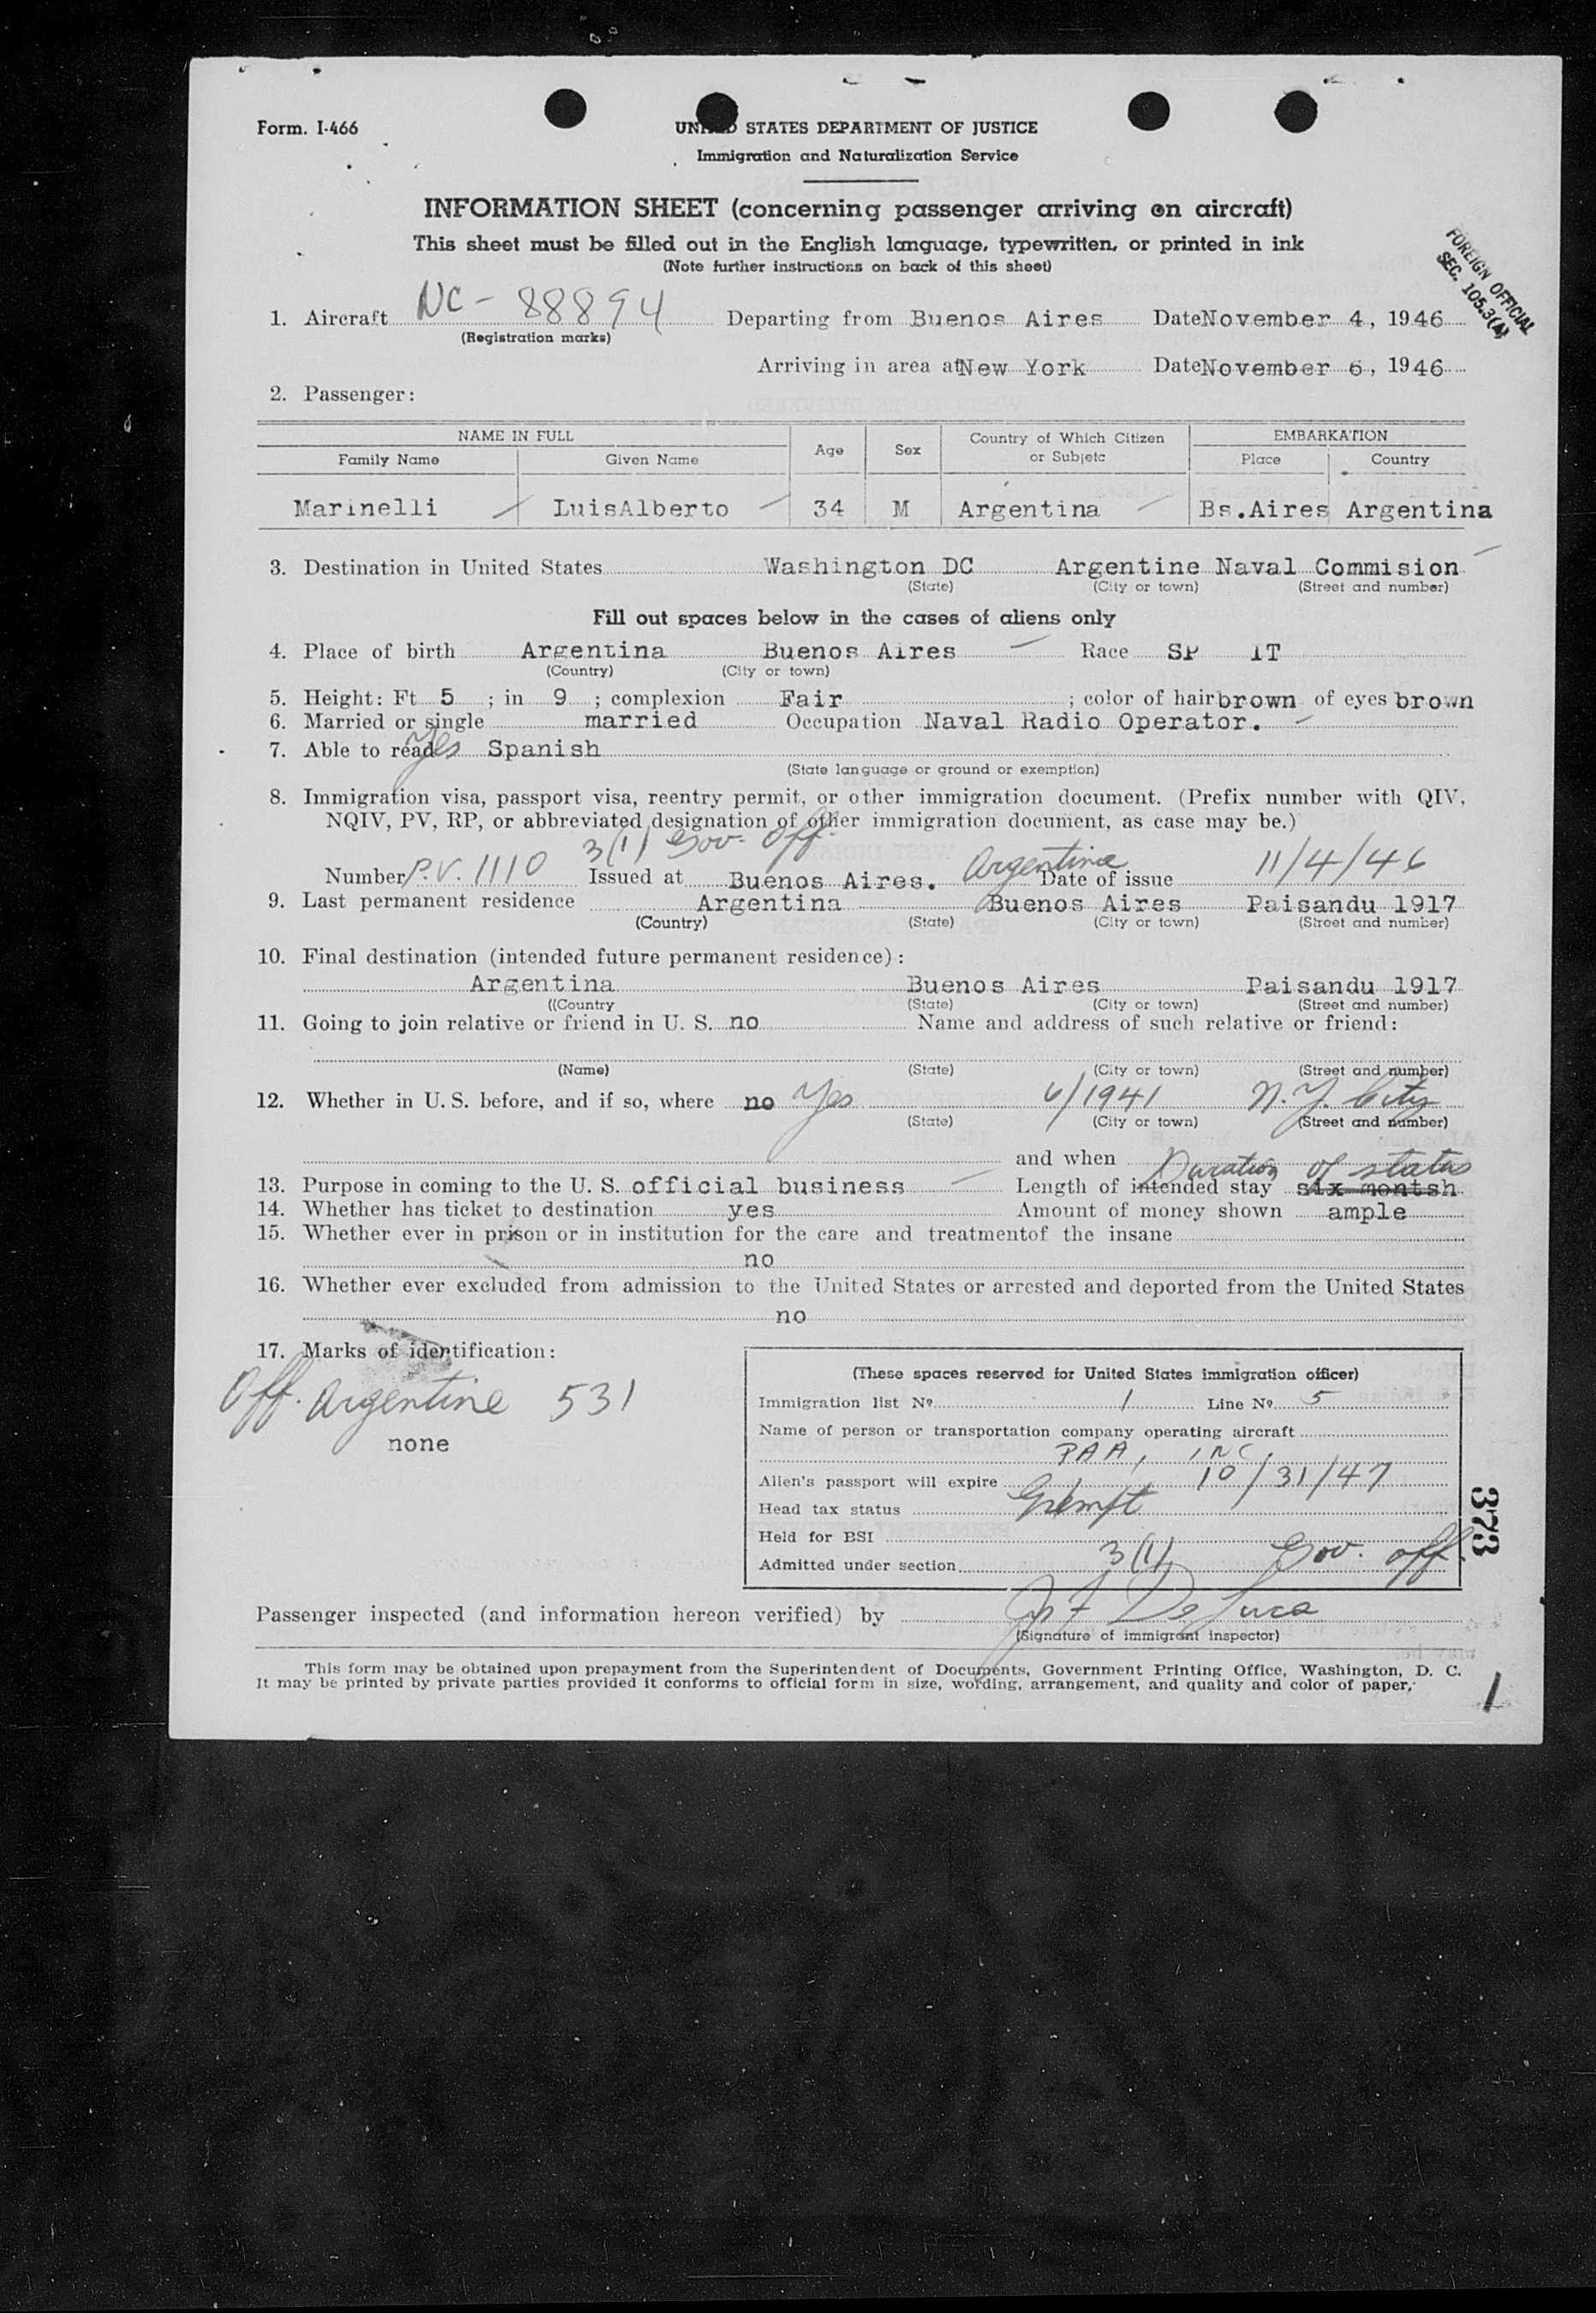 Form. I-466
UNITED STATES DEPARTMENT OF JUSTICE
Immigration and Naturalization Service
INFORMATION SHEET (concerning passenger arriving on aircraft)
This sheet must be filled out in the English language, typewritten, or printed in ink
(Note further instructions on back of this sheet)
FOREIGN OFFICIAL
SEC. 105.3(A)
1. Aircraft NC-88894 Departing from Buenos Aires Date November 4, 1946
(Registration marks)
Arriving in area at New York Date November 6, 1946
2. Passenger:
NAME IN FULL Age Sex Country of Which Citizen or Subjetc EMBARKATION
Family Name Given Name Place Country
Marinelli LuisAlberto 34 M Argentina Bs.Aires Argentina
3. Destination in United States Washington DC Argentine Naval Commision
(State) (City or town) (Street and number)
Fill out spaces below in the cases of aliens only
4. Place of birth Argentina Buenos Aires Race SP IT
(Country) (City or town)
5. Height: Ft 5 ; in 9 ; complexion Fair ; color of hair brown of eyes brown
6. Married or single married Occupation Naval Radio Operator.
7. Able to read yes Spanish
(State language or ground or exemption)
8. Immigration visa, passport visa, reentry permit, or other immigration document. (Prefix number with QIV,
NQIV, PV, RP, or abbreviated designation of other immigration document, as case may be.)
3(1) Gov. Off.
Number P.V. 1110 Issued at Buenos Aires. Argentina Date of issue 11/4/46
9. Last permanent residence Argentina Buenos Aires Paisandu 1917
(Country) (State) (City or town) (Street and number)
10. Final destination (intended future permanent residence):
Argentina Buenos Aires Paisandu 1917
((Country (State) (City or town) (Street and number)
11. Going to join relative or friend in U. S. no Name and address of such relative or friend:
(Name) (State) (City or town) (Street and number)
12. Whether in U. S. before, and if so, where no Yes 6/1941 N.Y. City
(State) (City or town) (Street and number)
and when Duration of status
13. Purpose in coming to the U. S. official business Length of intended stay six montsh
14. Whether has ticket to destination yes Amount of money shown ample
15. Whether ever in prison or in institution for the care and treatmentof the insane
no
16. Whether ever excluded from admission to the United States or arrested and deported from the United States
no
17. Marks of identification:
Off. Argentine 531
none
(These spaces reserved for United States immigration officer)
Immigration list Nº 1 Line Nº 5
Name of person or transportation company operating aircraft
PAA, INC.
Alien's passport will expire 10/31/47
Head tax status Exempt
Held for BSI
Admitted under section 3(1) Gov. off.
373
Passenger inspected (and information hereon verified) by De Luca
(Signature of immigrant inspector)
This form may be obtained upon prepayment from the Superintendent of Documents, Government Printing Office, Washington, D. C.
It may be printed by private parties provided it conforms to official form in size, wording, arrangement, and quality and color of paper.
1